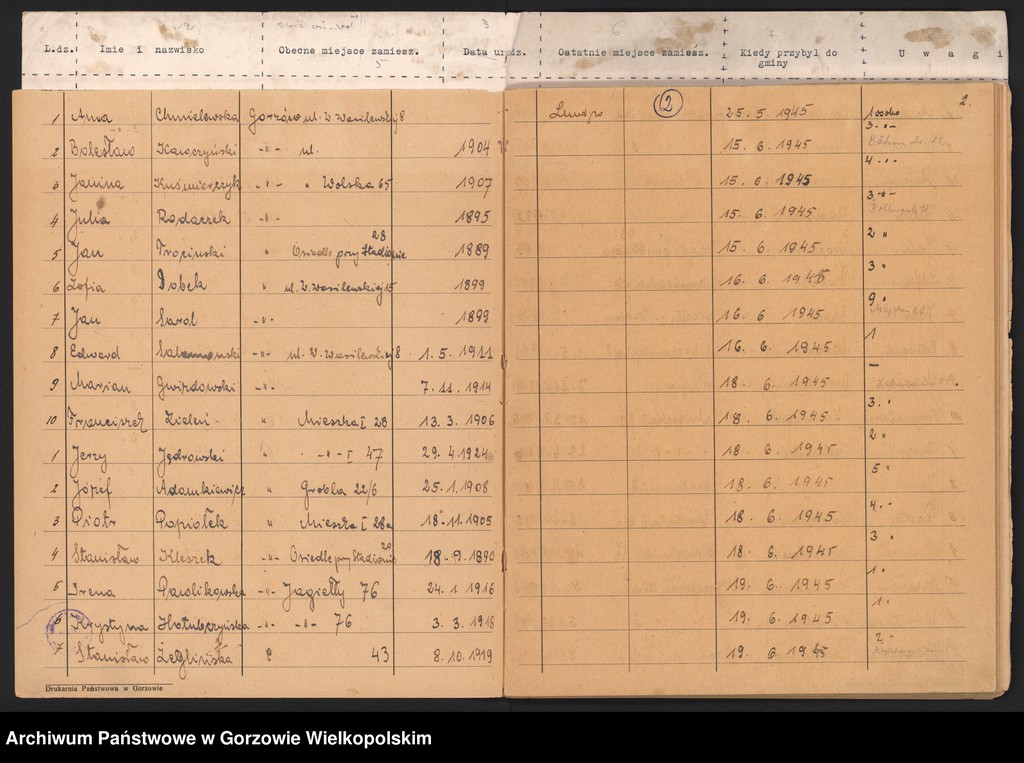 L.dz. Imie i nazwisko Obecne miejsce zamiesz. Data urodz. Ostatnie miejsce zamiesz. Kiedy przybył do gminy U w a g i
2 2.
1 Anna Chmielewska Gorzów ul. W. Wasilewskiej 8 25. 5. 1945 1 osoba
2 Bolesław Kawczyński -"- ul. 1904 15. 6. 1945 3 -"-
3 Janina Kuśmierczyk -"- " Wolska 65 1907 15. 6 1945 4 "
4 Julia Radaczek -"- 1895 15. 6. 1945 3 -"-
5 Jan Trociński " Osiedle przy Stadionie 28 1889 15. 6. 1945 2 "
6 Zofia Bobek " ul. W. Wasilewskiej 15 1899 16. 6. 1945 3 "
7 Jan Sarol -"- 1899 16. 6 1945 9 "
8 Edward -"- ul. W. Wasilewskiej 8 1. 5. 1911 16. 6. 1945 1
9 Marian Gwizdowski -"- 7. 11. 1914 18. 6. 1945 -
10 Franciszek Zieleń " Mieszka I 28 13. 3. 1906 18. 6. 1945 3. "
1 Jerzy Jędrowski " -"- I 47 29. 4. 1924 18. 6. 1945 2 "
2 Józef Adamkiewicz " Grobla 22/6 25. 1. 1908 18. 6. 1945 5 "
3 Piotr Papiołek " Mieszka I 28a 18. 11. 1905 18. 6. 1945 4. "
4 Stanisław Kleszek -"- Osiedle przy Stadionie 20 18. 9. 1890 18. 6. 1945 3 "
5 Irena Pawlikowska -"- Jagiełły 76 24. 1 1916 19. 6. 1945 1 "
6 Krystyna Hołubczyńska -"- -"- 76 3. 3. 1918 19. 6. 1945 1 "
7 Stanisław Żeglińska 43 8. 10. 1919 19. 6. 1945 2 "
Drukarnia Państwowa w Gorzowie
Archiwum Państwowe w Gorzowie Wielkopolskim